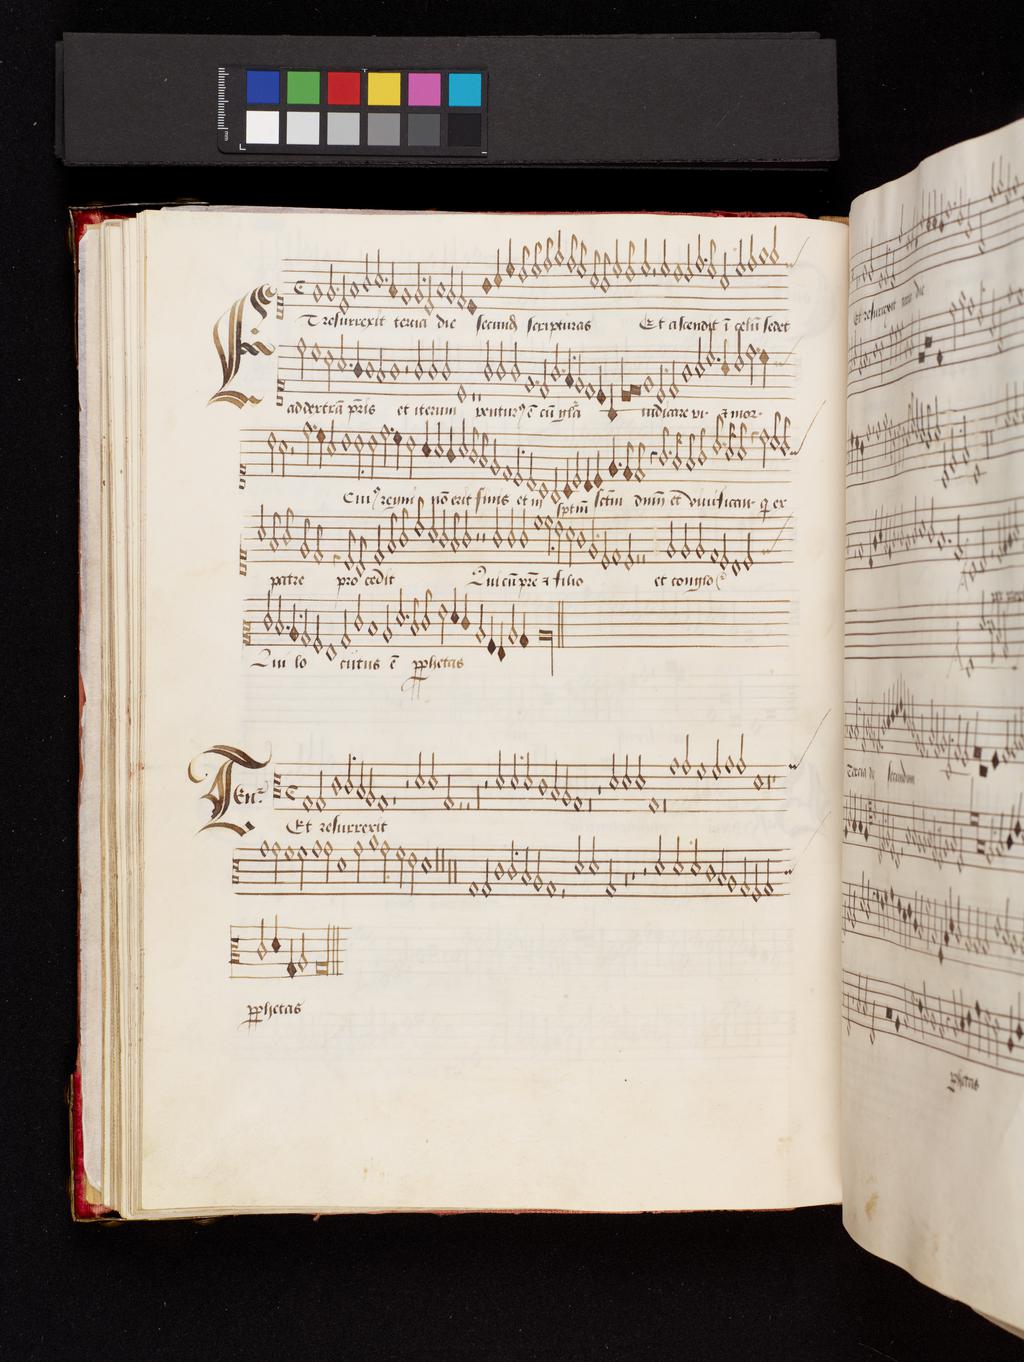 Et resurrexit tercia die secundũ scripturas Et ascendit ĩ celũ sedet
ad dextrã pr̃is et iterum venturꝰ ẽ cũ gl̃ia iudicare vi- ⁊ mor-
Cuiꝰ regni nõ erit finis et in sp̃tm̃ sctm̃ dnm̃ et viuificant- q̃ ex
patre pro cedit Qui cũ pr̃e ⁊ filio et conglo
Qui lo cutus ẽ ꝓphetas
Ten
Et resurrexit
ꝓphetas
Et resurrexit
Tercia die secundum
ꝓphetas